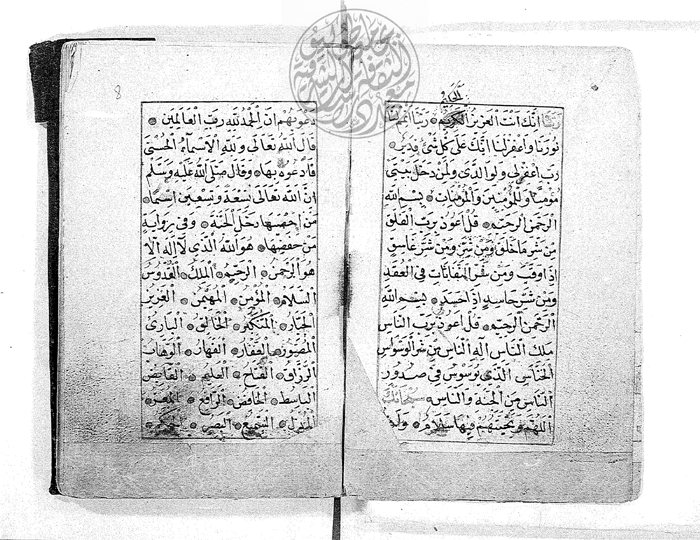 ربنا انك انت العزيز الحكيم ربنا اتمم لنا
نورنا واغفر لنا انك على كل شئ قدير
رب اغفرلي ولوالدي ولمن دخل بيتي
مؤمنا وللمؤمنين والمؤمنات بسم الله
الرحمن الرحيم قل اعوذ برب الفلق
من شر ما خلق ومن شر غاسق
اذا وقب ومن شر النفاثات في العقد
ومن شر حاسد اذا حسد بسم الله
الرحمن الرحيم قل اعوذ برب الناس
ملك الناس اله الناس من شر الوسواس
الخناس الذي يوسوس في صدور
الناس من الجنة والناس سبحانك
اللهم وتحيتهم فيها سلام
8
دعويهم ان الحمد لله رب العالمين
قال الله تعالى ولله الاسماء الحسنى
فادعوه بها وقال صلى الله عليه وسلم
ان الله تعالى تسعة وتسعين اسما
من احصيها دخل الجنة وفي رواية
من حفضها هو الله الذي لا اله الا
هو الرحمن الرحيم الملك القدوس
السلام المؤمن المهيمن العزيز
الجبار المتكبر الخالق البارئ
المصور الغفار القهار الوهاب
الرزاق الفتاح العليم القابض
الباسط الخافض الرافع المعز
المذل السميع البصير الحكم